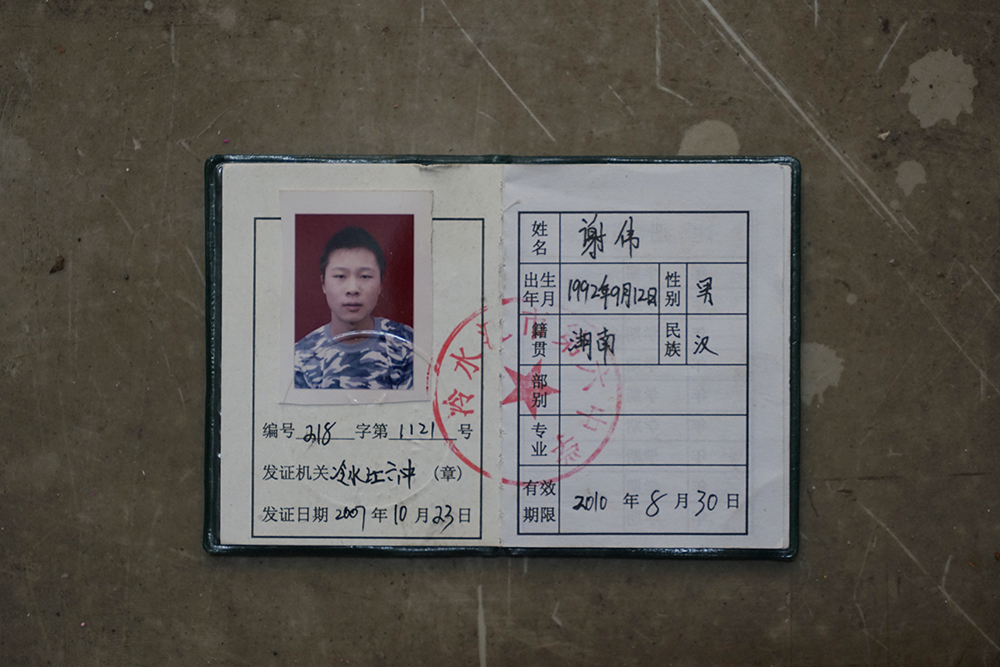 编号 218 字第 1121 号
发证机关 冷水江六中 (章)
发证日期 2007 年 10 月 23 日
姓名 谢伟
出生年月 1992年9月12日 性别 男
籍贯 湖南 民族 汉
部别
专业
有效期限 2010 年 8 月 30 日
冷水江市第六中学